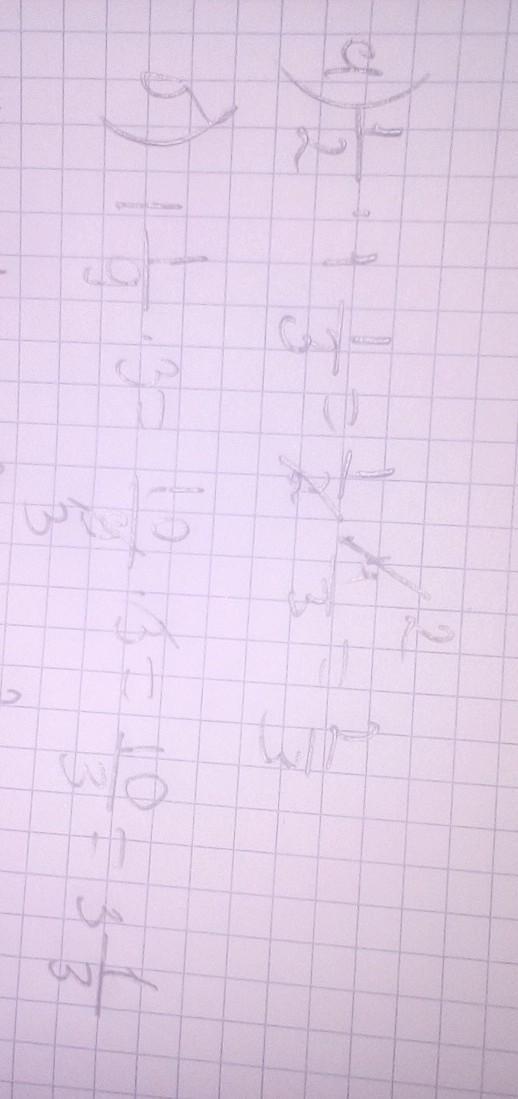 а) 1/2 · 1 1/3 = 1/2 · 4/3 = 2/3
б) 1 1/9 · 3 = 10/9 · 3 = 10/3 = 3 1/3